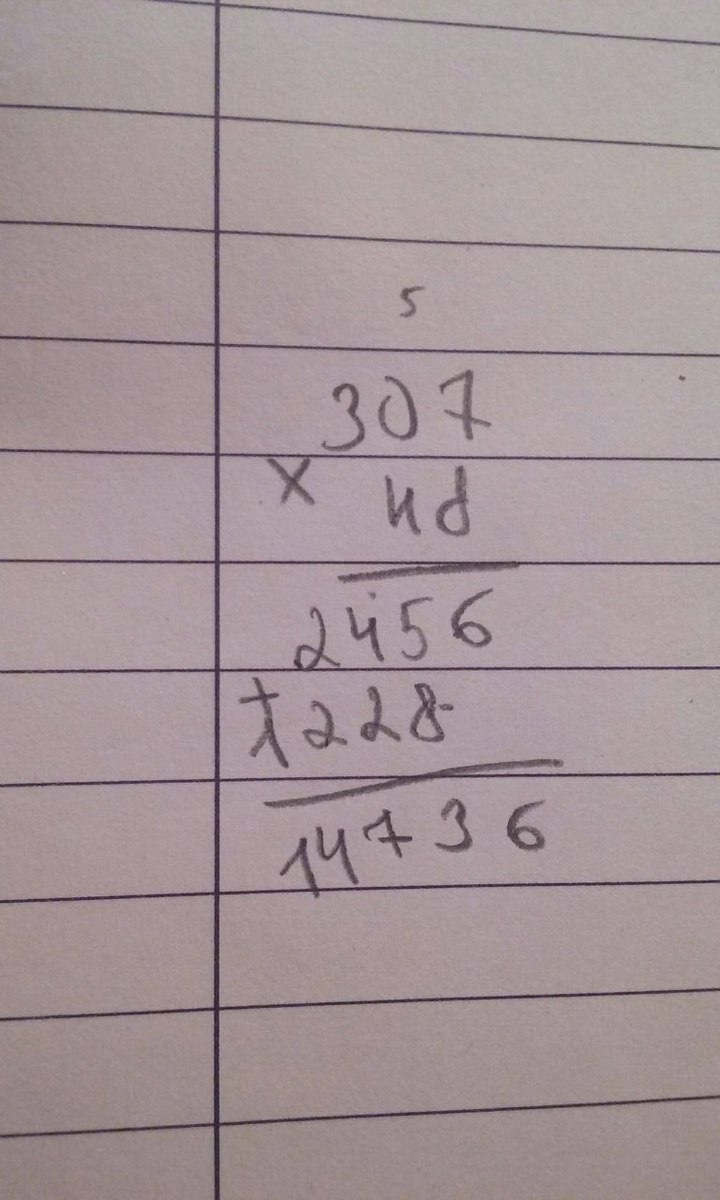 5
307
x 48
2456
+1228
14736